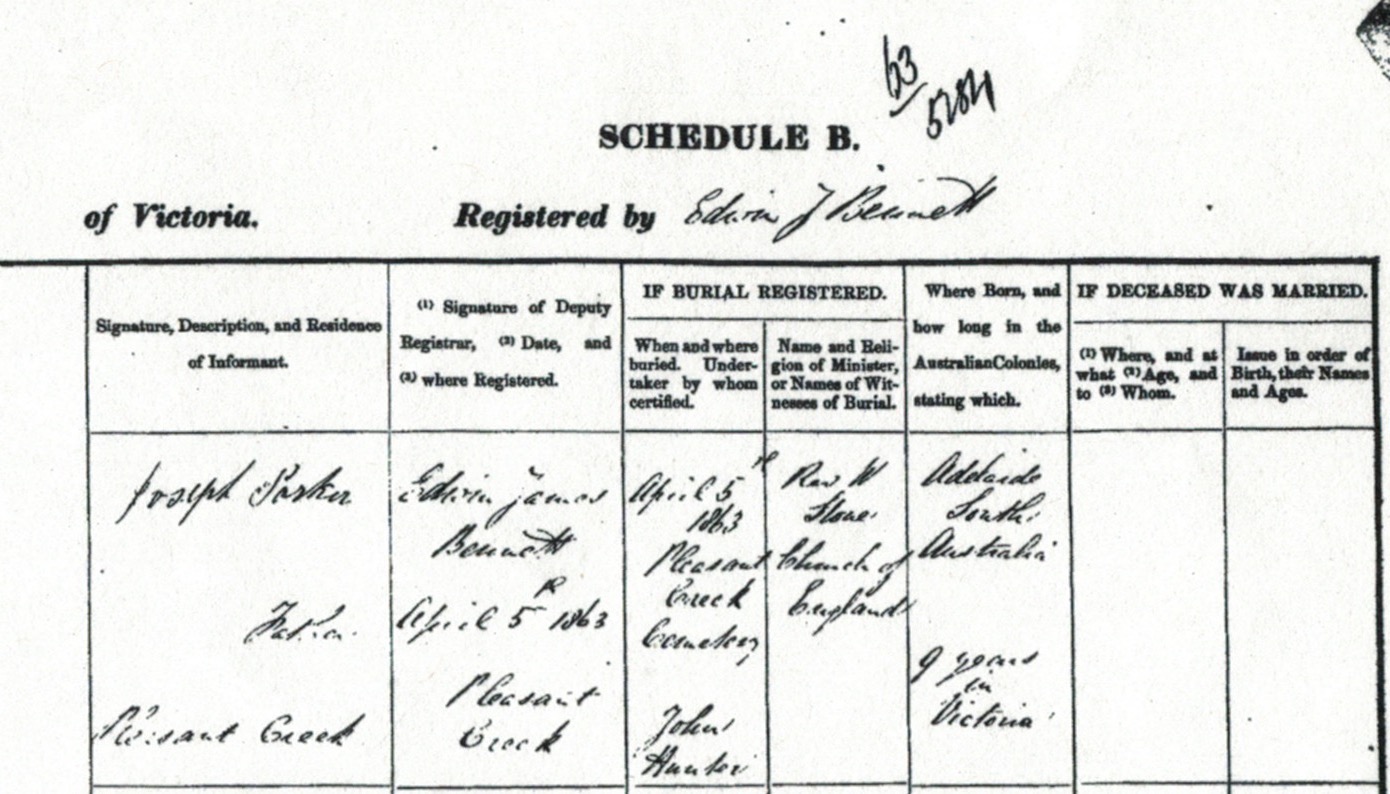 63
5284
SCHEDULE B.
of Victoria. Registered by Edwin J Bennett
Signature, Description, and Residence
of Informant.
(1) Signature of Deputy
Registrar, (2) Date, and
(3) where Registered.
IF BURIAL REGISTERED.
When and where
buried. Under-
taker by whom
certified.
Name and Reli-
gion of Minister,
or Names of Wit-
nesses of Burial.
Where Born, and
how long in the
Australian Colonies,
stating which.
IF DECEASED WAS MARRIED.
(1) Where, and at
what (2) Age, and
to (3) Whom.
Issue in order of
Birth, their Names
and Ages.
Joseph Parker
Father
Pleasant Creek
Edwin James
Bennett
April 5th 1863
Pleasant
Creek
April 5th
1863
Pleasant
Creek
Cemetery
John
Hunter
Rev W
Stone
Church of
England
Adelaide
South
Australia
9 years
in
Victoria